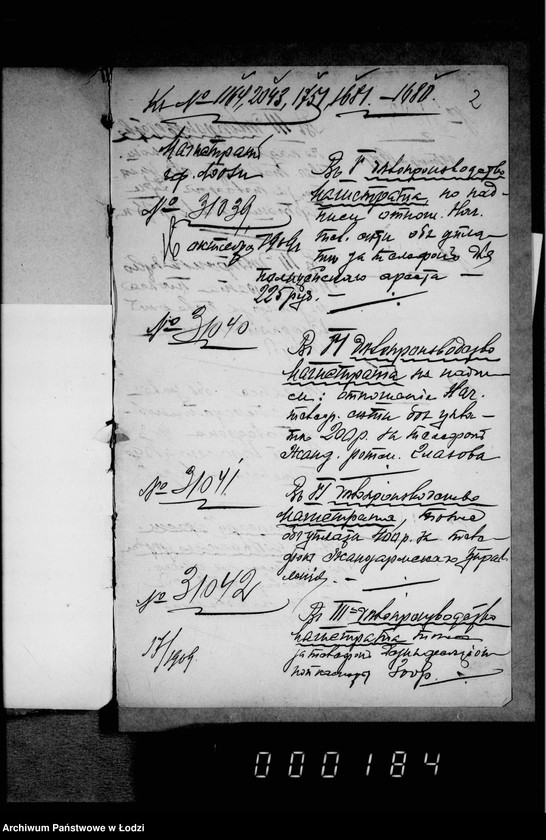 Къ № 1164, 2043, 1751, 1681. – 1680.
2
Магистратъ
гор. Лодзи
№ 31039
16 октября 1909 г.
Въ I дѣлопроизводство
магистрата, по над-
писи отнош. Нач.
тел. сѣти объ упла-
тѣ за телефонъ для
полицейскаго ареста –
225 руб. –
№ 31040
Въ III дѣлопроизводство
магистрата на надпи-
си: отношеніе Нач.
телеф. сѣти объ упла-
тѣ 200 р. за телефонъ
Жанд. ротм.
№ 31041.
Въ III дѣлопроизводство
магистрата, тоже
объ уплатѣ 100 р. за теле-
фонъ Жандармскаго Управ-
ленія. –
№ 31042
17/1909
Въ III дѣлопроизводство
магистрата тоже
за телефонъ
300 р. –
000184
Archiwum Państwowe w Łodzi